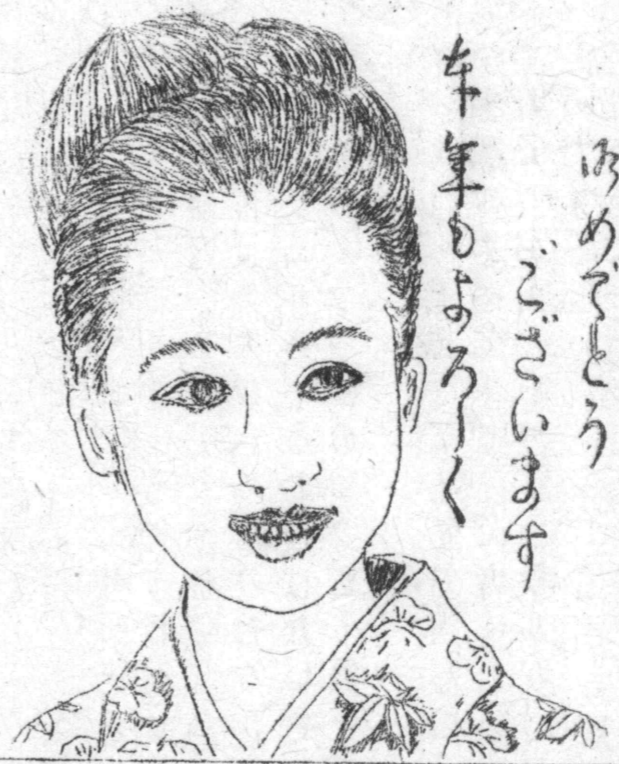 明めでとう
ございます
本年もよろしく